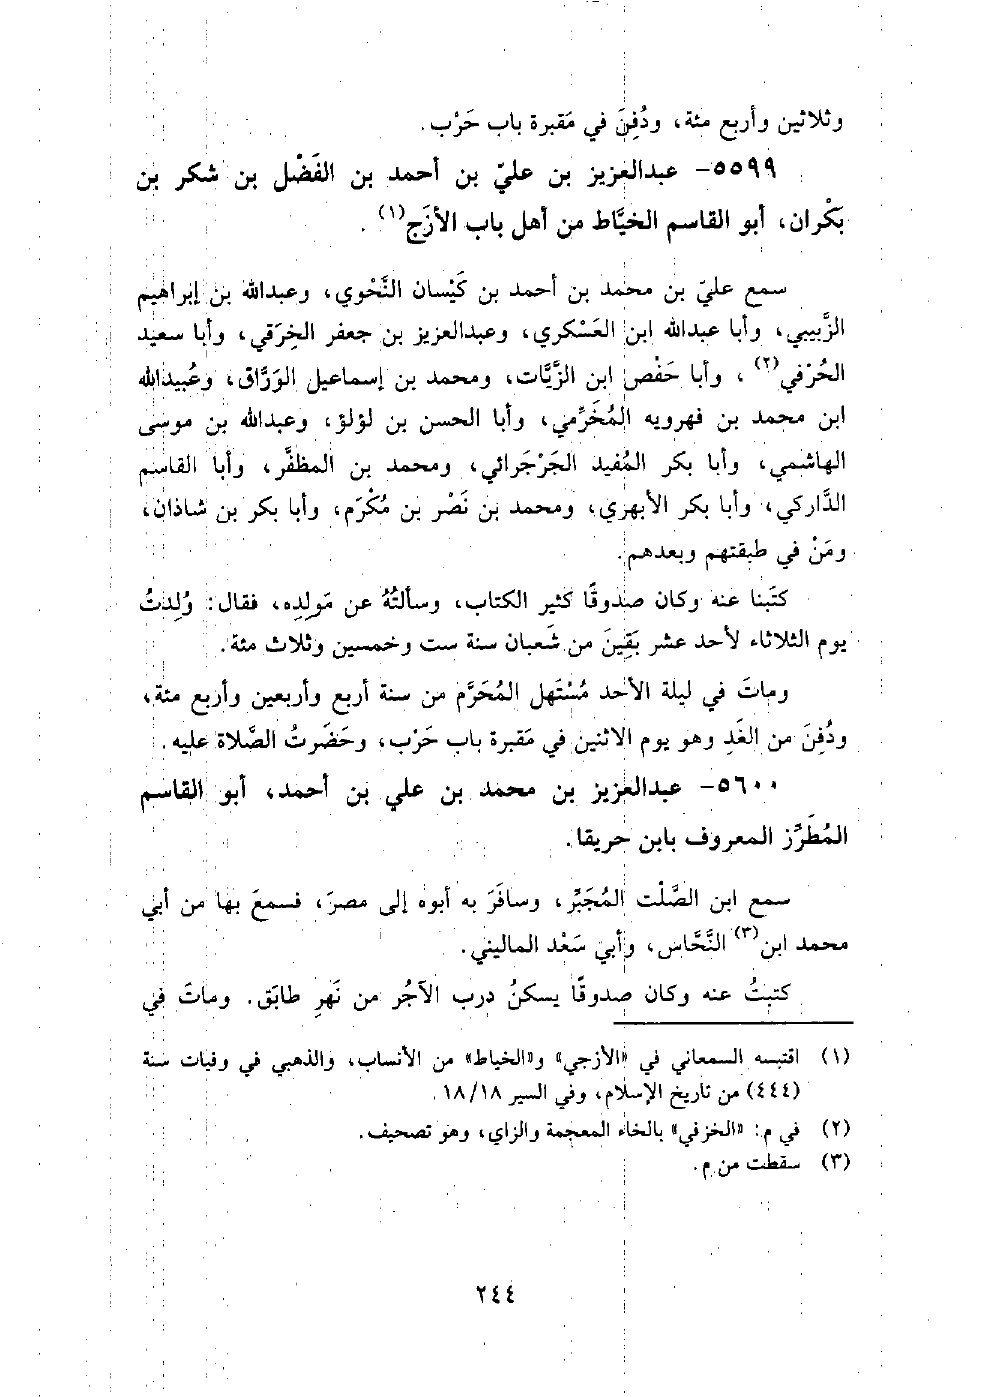 وثلاثين وأربع مئة، ودُفِنَ في مَقبرة باب حَرْب.
٥٥٩٩- عبدالعزيز بن عليّ بن أحمد بن الفَضْل بن شكر بن
بَكْران، أبو القاسم الخيَّاط من أهل باب الأزَج(١).
سمع عليّ بن محمد بن أحمد بن كَيْسان النَّحْوي، وعبدالله بن إبراهيم
الزَّبيبي، وأبا عبدالله ابن العَسْكري، وعبدالعزيز بن جعفر الخِرَقي، وأبا سعيد
الحُرْفي(٢)، وأبا حَفْص ابن الزَّيَّات، ومحمد بن إسماعيل الوَرَّاق، وعُبيدالله
ابن محمد بن فهرويه المُخَرِّمي، وأبا الحسن بن لؤلؤ، وعبدالله بن موسى
الهاشمي، وأبا بكر المُفيد الجَرْجَرائي، ومحمد بن المظفَّر، وأبا القاسم
الدَّاركي، وأبا بكر الأبهري، ومحمد بن نَصْر بن مُكْرَم، وأبا بكر بن شاذان،
ومَنْ في طبقتهم وبعدهم.
كتَبنا عنه وكان صدوقًا كثير الكتاب، وسألتُهُ عن مَولِدِه، فقال: وُلِدتُ
يوم الثلاثاء لأحد عشر بَقِينَ من شَعبان سنة ست وخمسين وثلاث مئة.
وماتَ في ليلة الأحد مُسْتَهل المُحَرَّم من سنة أربع وأربعين وأربع مئة،
ودُفِنَ من الغَدِ وهو يوم الاثنين في مَقبرة باب حَرْب، وحَضَرتُ الصَّلاة عليه.
٥٦٠٠- عبدالعزيز بن محمد بن علي بن أحمد، أبو القاسم
المُطَرِّز المعروف بابن حريقا.
سمع ابن الصَّلْت المُجَبِّر، وسافَرَ به أبوه إلى مصرَ، فسمعَ بها من أبي
محمد ابن(٣) النَّحَّاس، وأبي سَعْد الماليني.
كتبتُ عنه وكان صدوقًا يسكنُ درب الآجُر من نَهرِ طابَق. وماتَ في
(١) اقتبسه السمعاني في «الأزجي» و«الخياط» من الأنساب، والذهبي في وفيات سنة
(٤٤٤) من تاريخ الإسلام، وفي السير ١٨/١٨.
(٢) في م: «الخزفي» بالخاء المعجمة والزاي، وهو تصحيف.
(٣) سقطت من م.
٢٤٤